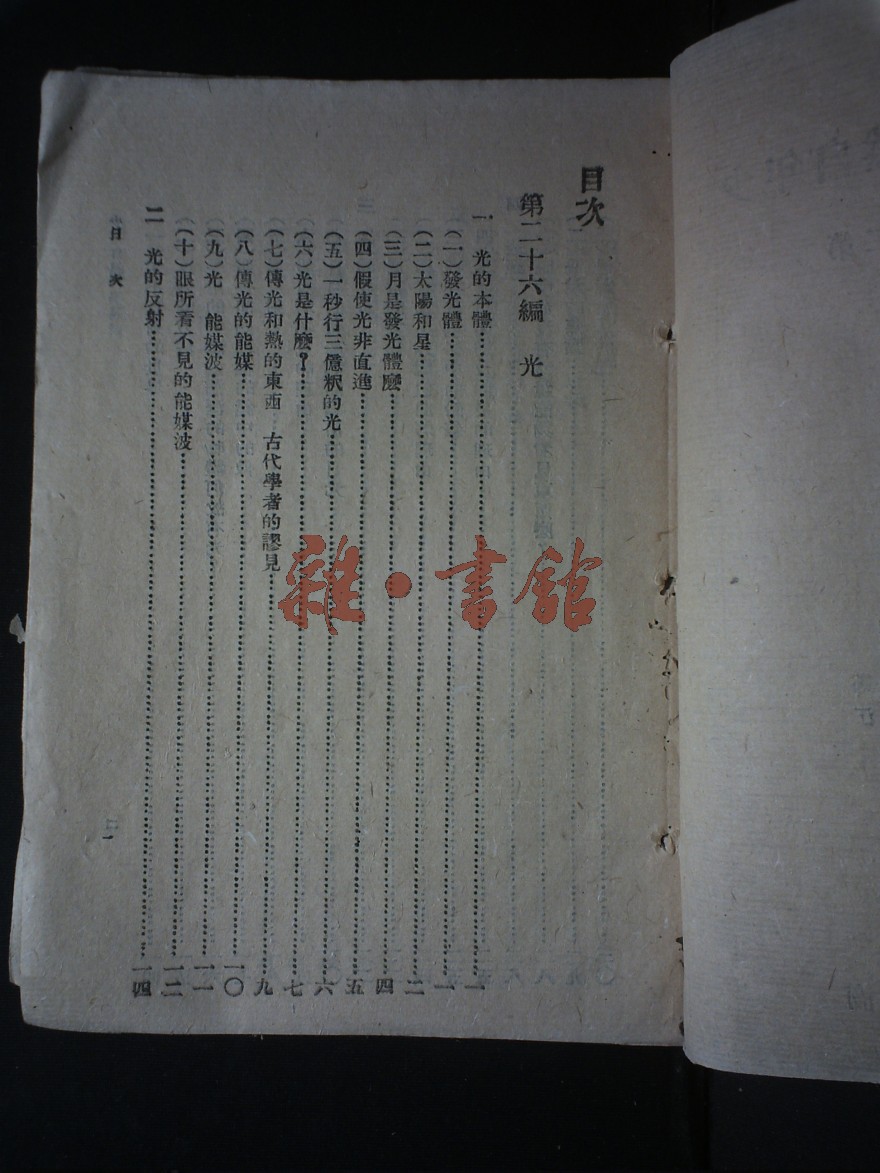 目次
第二十六編　光
一　光的本體……一
（一）發光體……一
（二）太陽和星……二
（三）月是發光體麼……四
（四）假使光非直進……五
（五）一秒行三億釈的光……六
（六）光是什麼？……七
（七）傳光和熱的東西　古代學者的謬見……九
（八）傳光的能媒……一〇
（九）光　能媒波……一一
（十）眼所看不見的能媒波……一二
二　光的反射……一四
目次
一
雜·書館